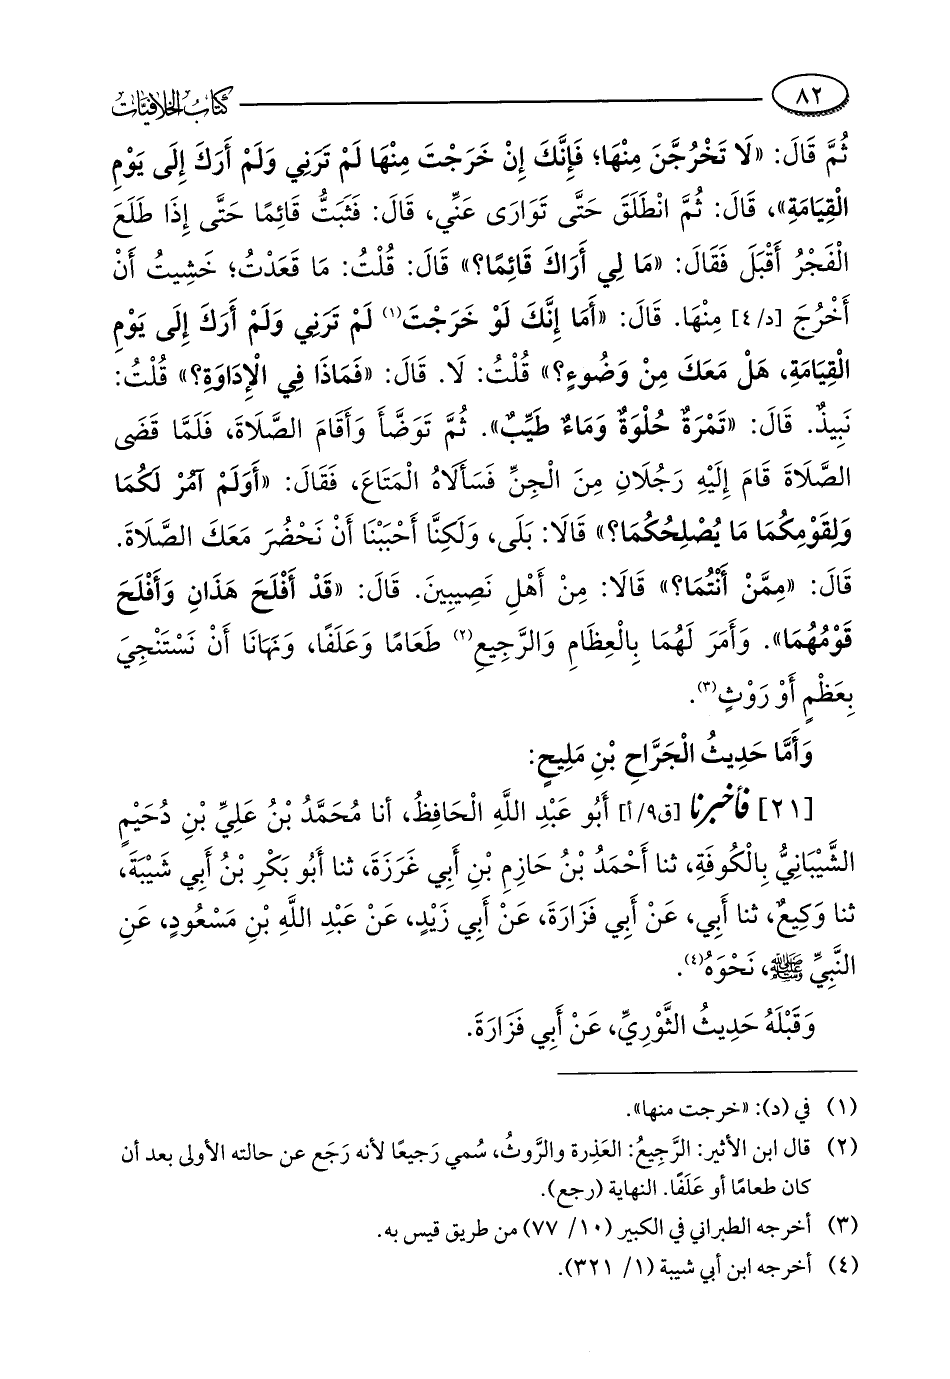 ٨٢ كتاب الخلافيات
ثُمَّ قَالَ: «لَا تَخْرُجَنَّ مِنْهَا؛ فَإِنَّكَ إِنْ خَرَجْتَ مِنْهَا لَمْ تَرَنِي وَلَمْ أَرَكَ إِلَى يَوْمِ
الْقِيَامَةِ»، قَالَ: ثُمَّ انْطَلَقَ حَتَّى تَوَارَى عَنِّي، قَالَ: فَثَبَتُّ قَائِمًا حَتَّى إِذَا طَلَعَ
الْفَجْرُ أَقْبَلَ فَقَالَ: «مَا لِي أَرَاكَ قَائِمًا؟» قَالَ: قُلْتُ: مَا قَعَدْتُ؛ خَشِيتُ أَنْ
أَخْرُجَ [د/٤] مِنْهَا. قَالَ: «أَمَا إِنَّكَ لَوْ خَرَجْتَ(١) لَمْ تَرَنِي وَلَمْ أَرَكَ إِلَى يَوْمِ
الْقِيَامَةِ، هَلْ مَعَكَ مِنْ وَضُوءٍ؟» قُلْتُ: لَا. قَالَ: «فَمَاذَا فِي الْإِدَاوَةِ؟» قُلْتُ:
نَبِيذٌ. قَالَ: «تَمْرَةٌ حُلْوَةٌ وَمَاءٌ طَيِّبٌ». ثُمَّ تَوَضَّأَ وَأَقَامَ الصَّلَاةَ، فَلَمَّا قَضَى
الصَّلَاةَ قَامَ إِلَيْهِ رَجُلَانِ مِنَ الْجِنِّ فَسَأَلَاهُ الْمَتَاعَ، فَقَالَ: «أَوَلَمْ آمُرْ لَكُمَا
وَلِقَوْمِكُمَا مَا يُصْلِحُكُمَا؟» قَالَا: بَلَى، وَلَكِنَّا أَحْبَبْنَا أَنْ نَحْضُرَ مَعَكَ الصَّلَاةَ.
قَالَ: «مِمَّنْ أَنْتُمَا؟» قَالَا: مِنْ أَهْلِ نَصِيبِينَ. قَالَ: «قَدْ أَفْلَحَ هَذَانِ وَأَفْلَحَ
قَوْمُهُمَا». وَأَمَرَ لَهُمَا بِالْعِظَامِ وَالرَّجِيعِ(٢) طَعَامًا وَعَلَفًا، وَنَهَانَا أَنْ نَسْتَنْجِيَ
بِعَظْمٍ أَوْ رَوْثٍ(٣).
وَأَمَّا حَدِيثُ الْجَرَّاحِ بْنِ مَلِيحٍ:
[٢١] فأخبرنا [ق٩/أ] أَبُو عَبْدِ اللَّهِ الْحَافِظُ، أنا مُحَمَّدُ بْنُ عَلِيِّ بْنِ دُحَيْمٍ
الشَّيْبَانِيُّ بِالْكُوفَةِ، ثنا أَحْمَدُ بْنُ حَازِمِ بْنِ أَبِي غَرَزَةَ، ثنا أَبُو بَكْرِ بْنُ أَبِي شَيْبَةَ،
ثنا وَكِيعٌ، ثنا أَبِي، عَنْ أَبِي فَزَارَةَ، عَنْ أَبِي زَيْدٍ، عَنْ عَبْدِ اللَّهِ بْنِ مَسْعُودٍ، عَنِ
النَّبِيِّ ﷺ، نَحْوَهُ(٤).
وَقَبْلَهُ حَدِيثُ الثَّوْرِيِّ، عَنْ أَبِي فَزَارَةَ.
(١) في (د): «خرجت منها».
(٢) قال ابن الأثير: الرَّجِيعُ: العَذِرة والرَّوثُ، سُمي رَجيعًا لأنه رَجَع عن حالته الأولى بعد أن
كان طعامًا أو عَلَفًا. النهاية (رجع).
(٣) أخرجه الطبراني في الكبير (١٠/ ٧٧) من طريق قيس به.
(٤) أخرجه ابن أبي شيبة (١/ ٣٢١).